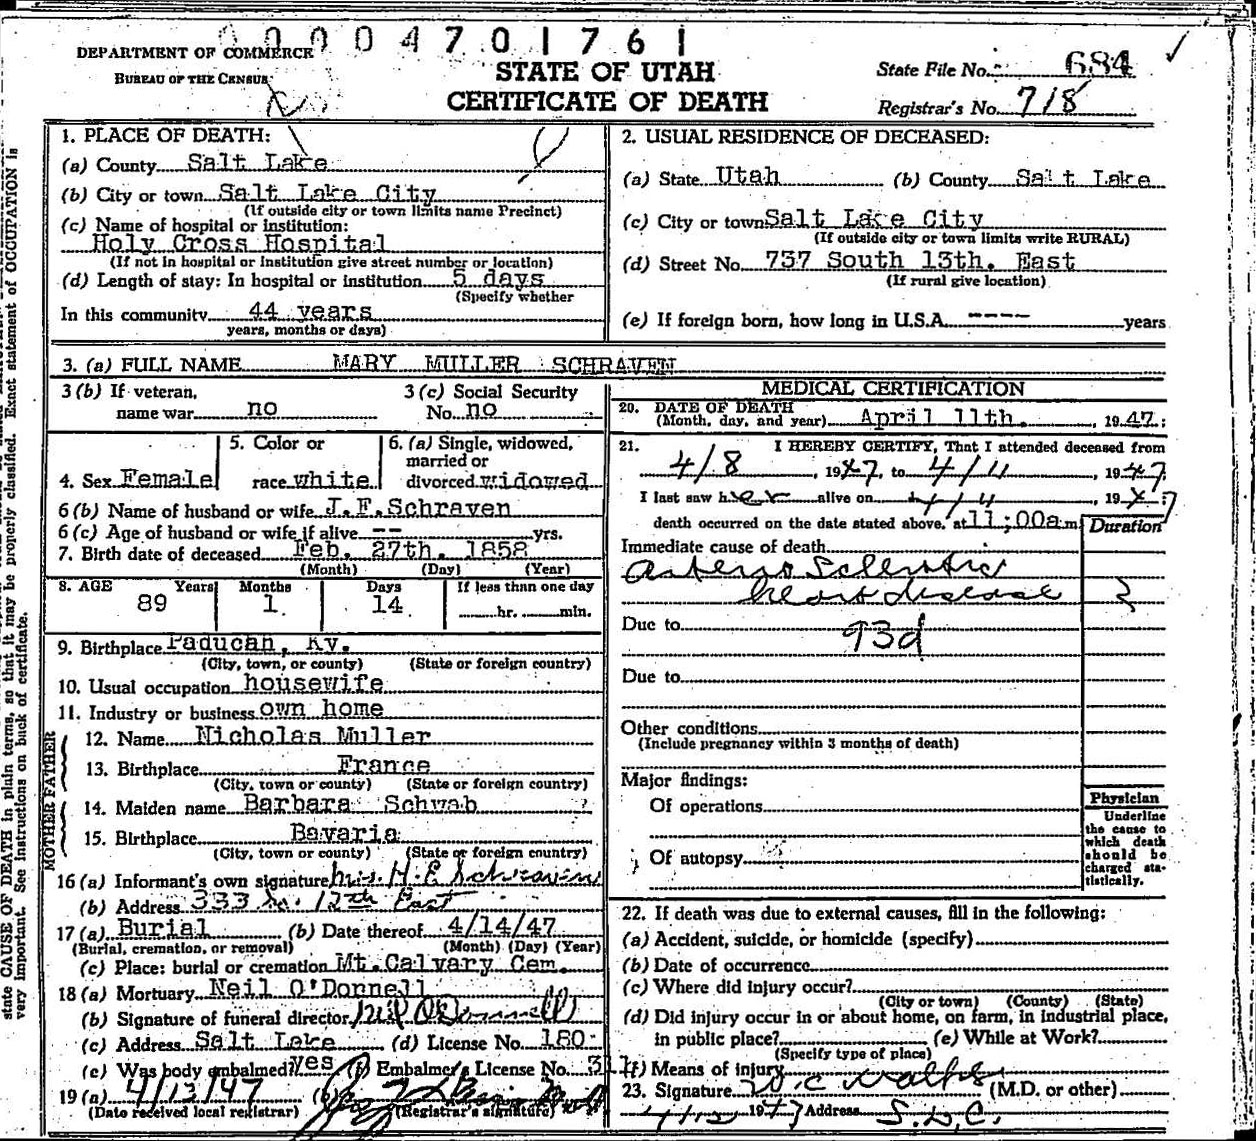 00004701761
DEPARTMENT OF COMMERCE
BUREAU OF THE CENSUS
STATE OF UTAH
CERTIFICATE OF DEATH
State File No. 684
Registrar's No. 718
1. PLACE OF DEATH:
(a) County Salt Lake
(b) City or town Salt Lake City
(If outside city or town limits name Precinct)
(c) Name of hospital or institution:
Holy Cross Hospital
(If not in hospital or institution give street number or location)
(d) Length of stay: In hospital or institution 5 days
(Specify whether
In this community 44 years
years, months or days)
2. USUAL RESIDENCE OF DECEASED:
(a) State Utah (b) County Salt Lake
(c) City or town Salt Lake City
(If outside city or town limits write RURAL)
(d) Street No. 737 South 13th. East
(If rural give location)
(e) If foreign born, how long in U.S.A. ---- years
3. (a) FULL NAME MARY MULLER SCHRAVEN
3 (b) If veteran, name war no
3 (c) Social Security No. no
4. Sex Female
5. Color or race white
6. (a) Single, widowed, married or divorced widowed
6 (b) Name of husband or wife J.F.Schraven
6 (c) Age of husband or wife if alive -- yrs.
7. Birth date of deceased Feb. 27th. 1858
(Month) (Day) (Year)
8. AGE Years Months Days If less than one day
89 1 14 hr. min.
9. Birthplace Paducah, Ky.
(City, town, or county) (State or foreign country)
10. Usual occupation housewife
11. Industry or business own home
FATHER
12. Name Nicholas Muller
13. Birthplace France
(City, town or county) (State or foreign country)
MOTHER
14. Maiden name Barbara Schwab
15. Birthplace Bavaria
(City, town or county) (State or foreign country)
16 (a) Informant's own signature Mrs. H E Schraven
(b) Address 333 So. 12th East
17 (a) Burial (b) Date thereof 4/14/47
(Burial, cremation, or removal) (Month) (Day) (Year)
(c) Place: burial or cremation Mt.Calvary Cem.
18 (a) Mortuary Neil O'Donnell
(b) Signature of funeral director Neil O'Donnell
(c) Address Salt Lake (d) License No. 180
(e) Was body embalmed? yes (f) Embalmer's License No.
19 (a) 4/13/47 (b)
(Date received local registrar) (Registrar's signature)
MEDICAL CERTIFICATION
20. DATE OF DEATH
(Month, day, and year) April 11th. , 1947;
21. I HEREBY CERTIFY, That I attended deceased from
4/8 , 1947, to 4/11 , 1947
I last saw her alive on 4/11 , 1947;
death occurred on the date stated above, at 11;00a m. Duration
Immediate cause of death
Arterio Sclerotic
heart disease
Due to 93d
Due to
Other conditions
(Include pregnancy within 3 months of death)
Major findings:
Of operations
Of autopsy
Physician
Underline
the cause to
which death
should be
charged sta-
tistically.
22. If death was due to external causes, fill in the following:
(a) Accident, suicide, or homicide (specify)
(b) Date of occurrence
(c) Where did injury occur?
(City or town) (County) (State)
(d) Did injury occur in or about home, on farm, in industrial place,
in public place? (e) While at Work?
(Specify type of place)
(f) Means of injury
23. Signature (M.D. or other)
4/12 1947 Address S.L.C.
state CAUSE OF DEATH in plain terms, so that it may be properly classified. Exact statement of OCCUPATION is
very important. See instructions on back of certificate.